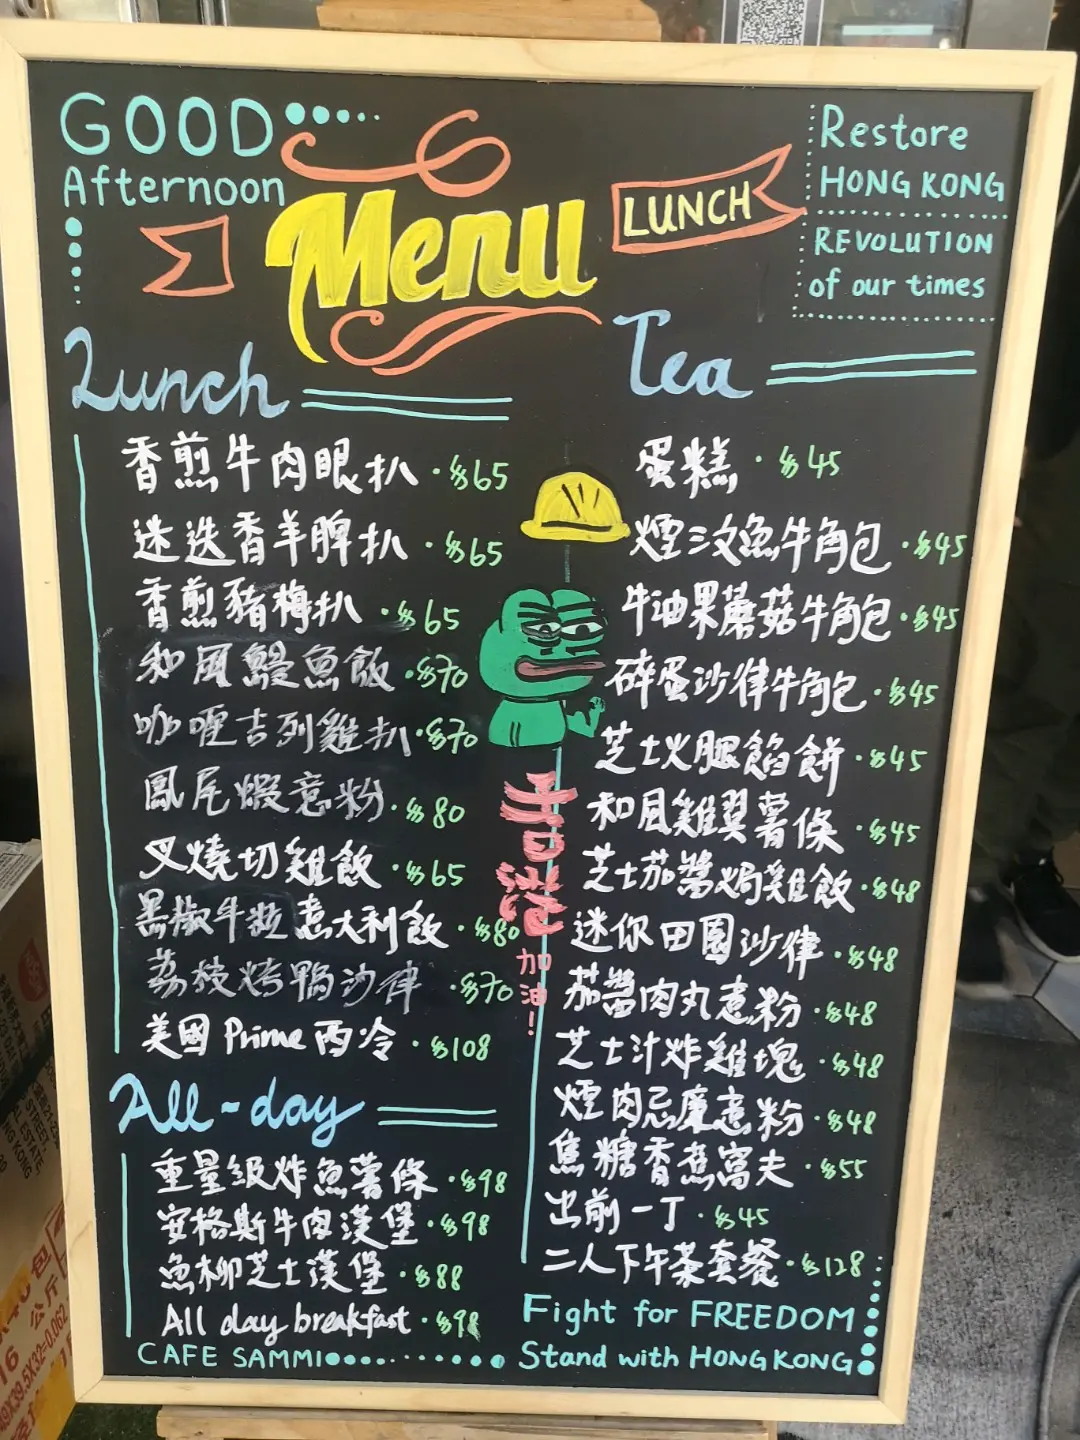 GOOD
Afternoon
Menu
LUNCH
Restore
HONG KONG
REVOLUTION
of our times
Lunch
香煎牛肉眼扒 · $65
迷迭香羊脾扒 · $65
香煎豬梅扒 · $65
和風鯷魚飯 · $70
咖喱吉列雞扒 · $70
鳳尾蝦意粉 · $80
叉燒切雞飯 · $65
黑椒牛粒意大利飯 · $80
荔枝烤鴨沙律 · $70
美國 Prime 西冷 · $108
All-day
重量級炸魚薯條 · $98
安格斯牛肉漢堡 · $98
魚柳芝士漢堡 · $88
All day breakfast · $98
CAFE SAMMI
香港
加油!
Tea
蛋糕 · $45
煙三文魚牛角包 · $45
牛油果蘑菇牛角包 · $45
碎蛋沙律牛角包 · $45
芝士火腿餡餅 · $45
和風雞翼薯條 · $45
芝士茄醬焗雞飯 · $48
迷你田園沙律 · $48
茄醬肉丸意粉 · $48
芝士汁炸雞塊 · $48
煙肉忌廉意粉 · $48
焦糖香蕉窩夫 · $55
出前一丁 · $45
二人下午茶套餐 · $128
Fight for FREEDOM
Stand with HONG KONG